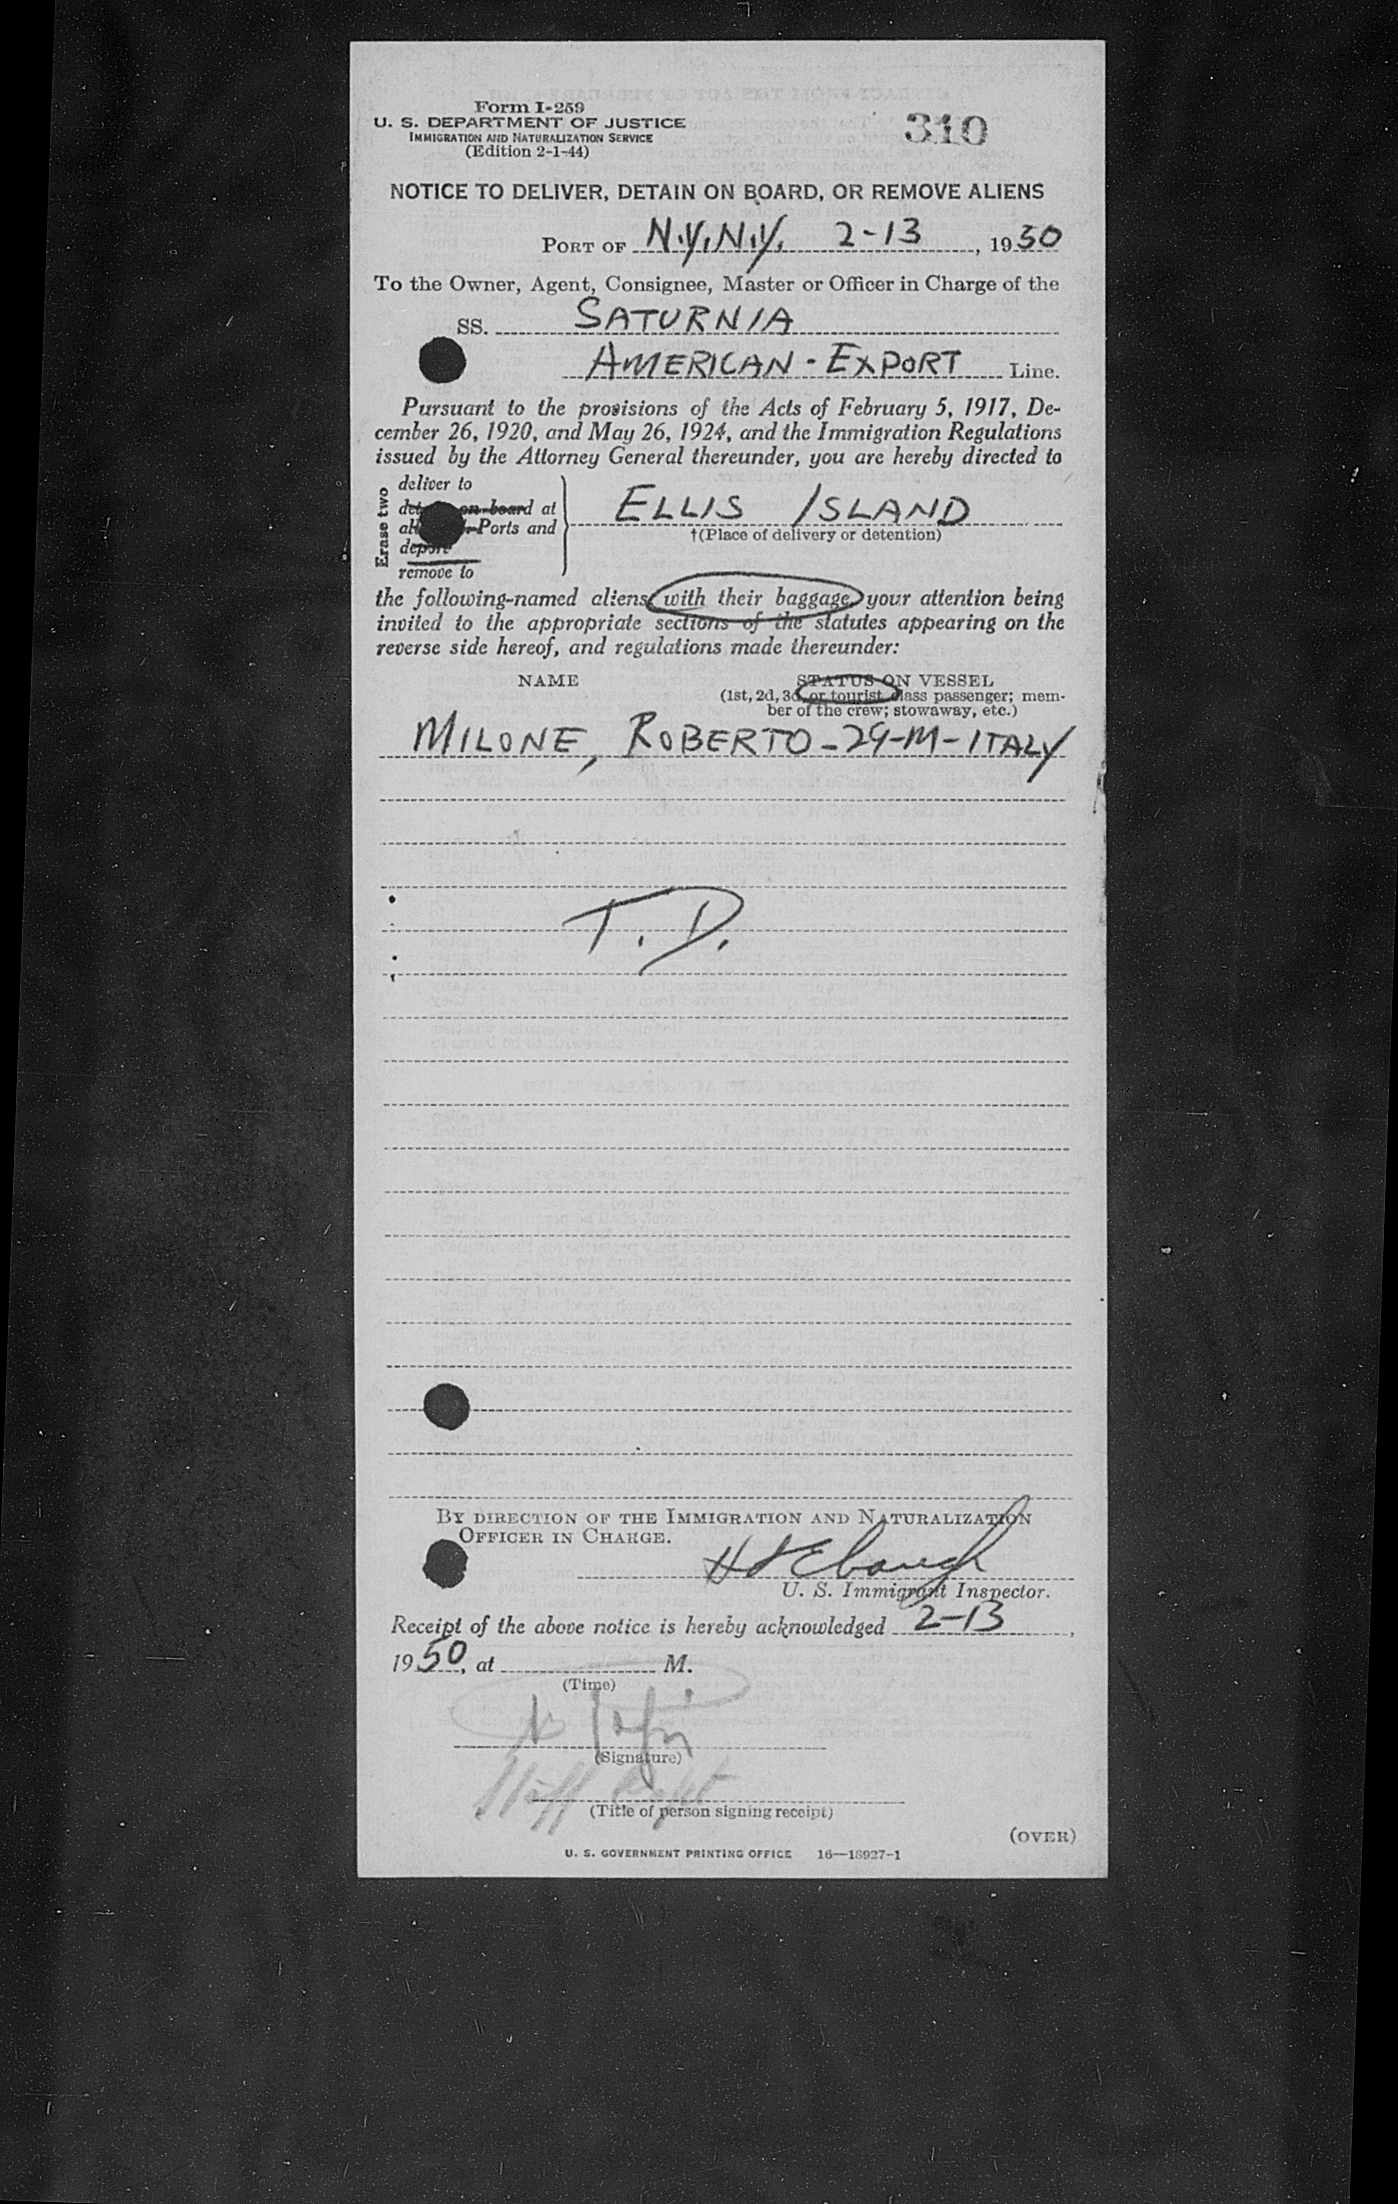 Form I-259
U. S. DEPARTMENT OF JUSTICE
IMMIGRATION AND NATURALIZATION SERVICE
(Edition 2-1-44)
310
NOTICE TO DELIVER, DETAIN ON BOARD, OR REMOVE ALIENS
PORT OF N.Y.N.Y. 2-13, 1950
To the Owner, Agent, Consignee, Master or Officer in Charge of the
SS. SATURNIA
AMERICAN-EXPORT Line.
Pursuant to the provisions of the Acts of February 5, 1917, De-
cember 26, 1920, and May 26, 1924, and the Immigration Regulations
issued by the Attorney General thereunder, you are hereby directed to
Erase two
deliver to
on board at
Ports and
deport
remove to
ELLIS ISLAND
†(Place of delivery or detention)
the following-named aliens with their baggage, your attention being
invited to the appropriate sections of the statutes appearing on the
reverse side hereof, and regulations made thereunder:
NAME
STATUS ON VESSEL
(1st, 2d, 3d, or tourist class passenger; mem-
ber of the crew; stowaway, etc.)
MILONE, ROBERTO-29-M-ITALY
T.D.
BY DIRECTION OF THE IMMIGRATION AND NATURALIZATION
OFFICER IN CHARGE.
U. S. Immigrant Inspector.
Receipt of the above notice is hereby acknowledged 2-13,
1950, at M.
(Time)
(Signature)
Staff
(Title of person signing receipt)
(OVER)
U. S. GOVERNMENT PRINTING OFFICE 16—18927-1